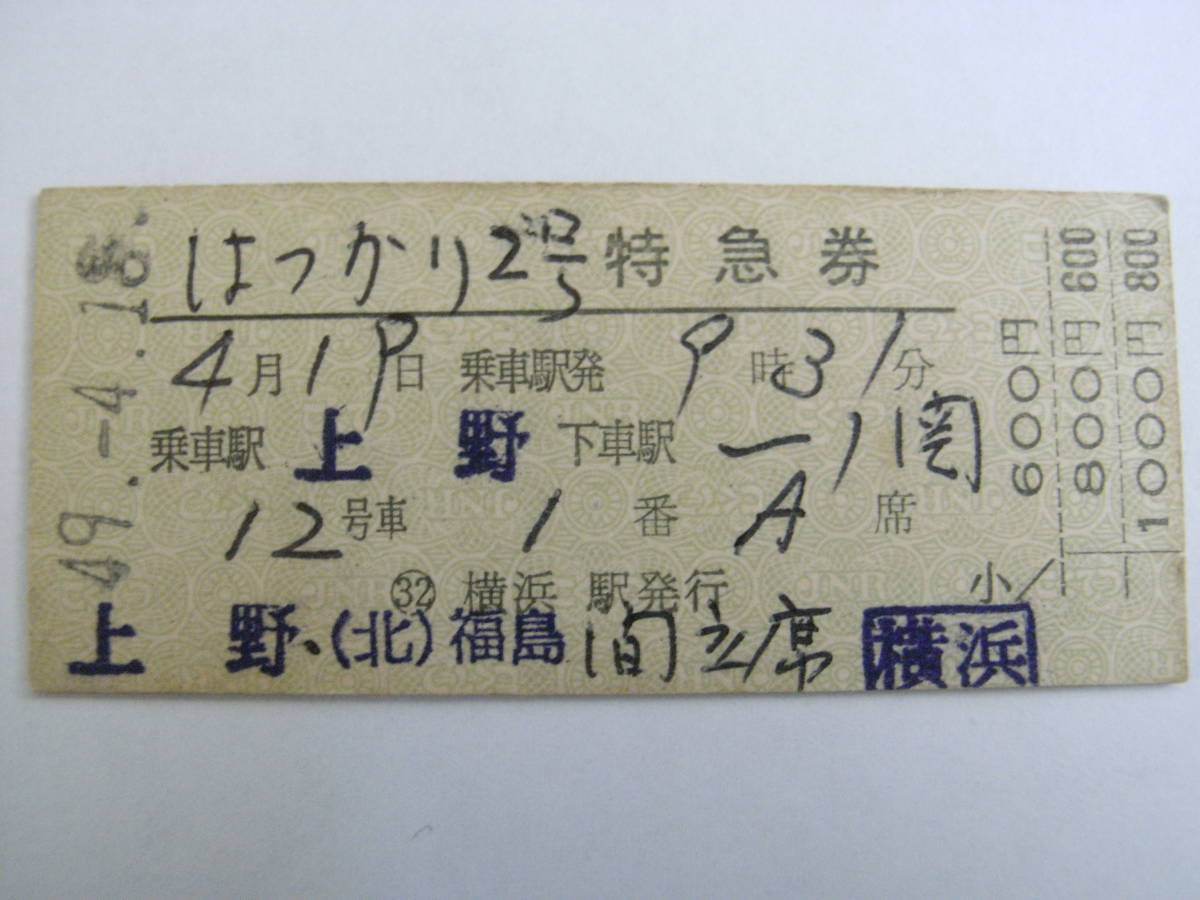 はつかり2号特急券
4月19日 乗車駅発 9時31分
乗車駅 上野 下車駅 一ノ関
12号車 1番 A席
㉜ 横浜駅発行 小
上野、(北)福島間立席 横浜
49.-4.18.
600円
800円 600
1000円 800